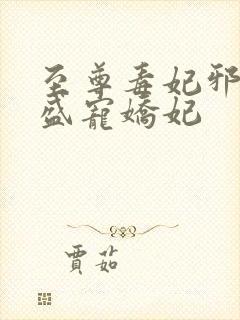 至尊毒妃邪
盛寵嬌妃
賈茹